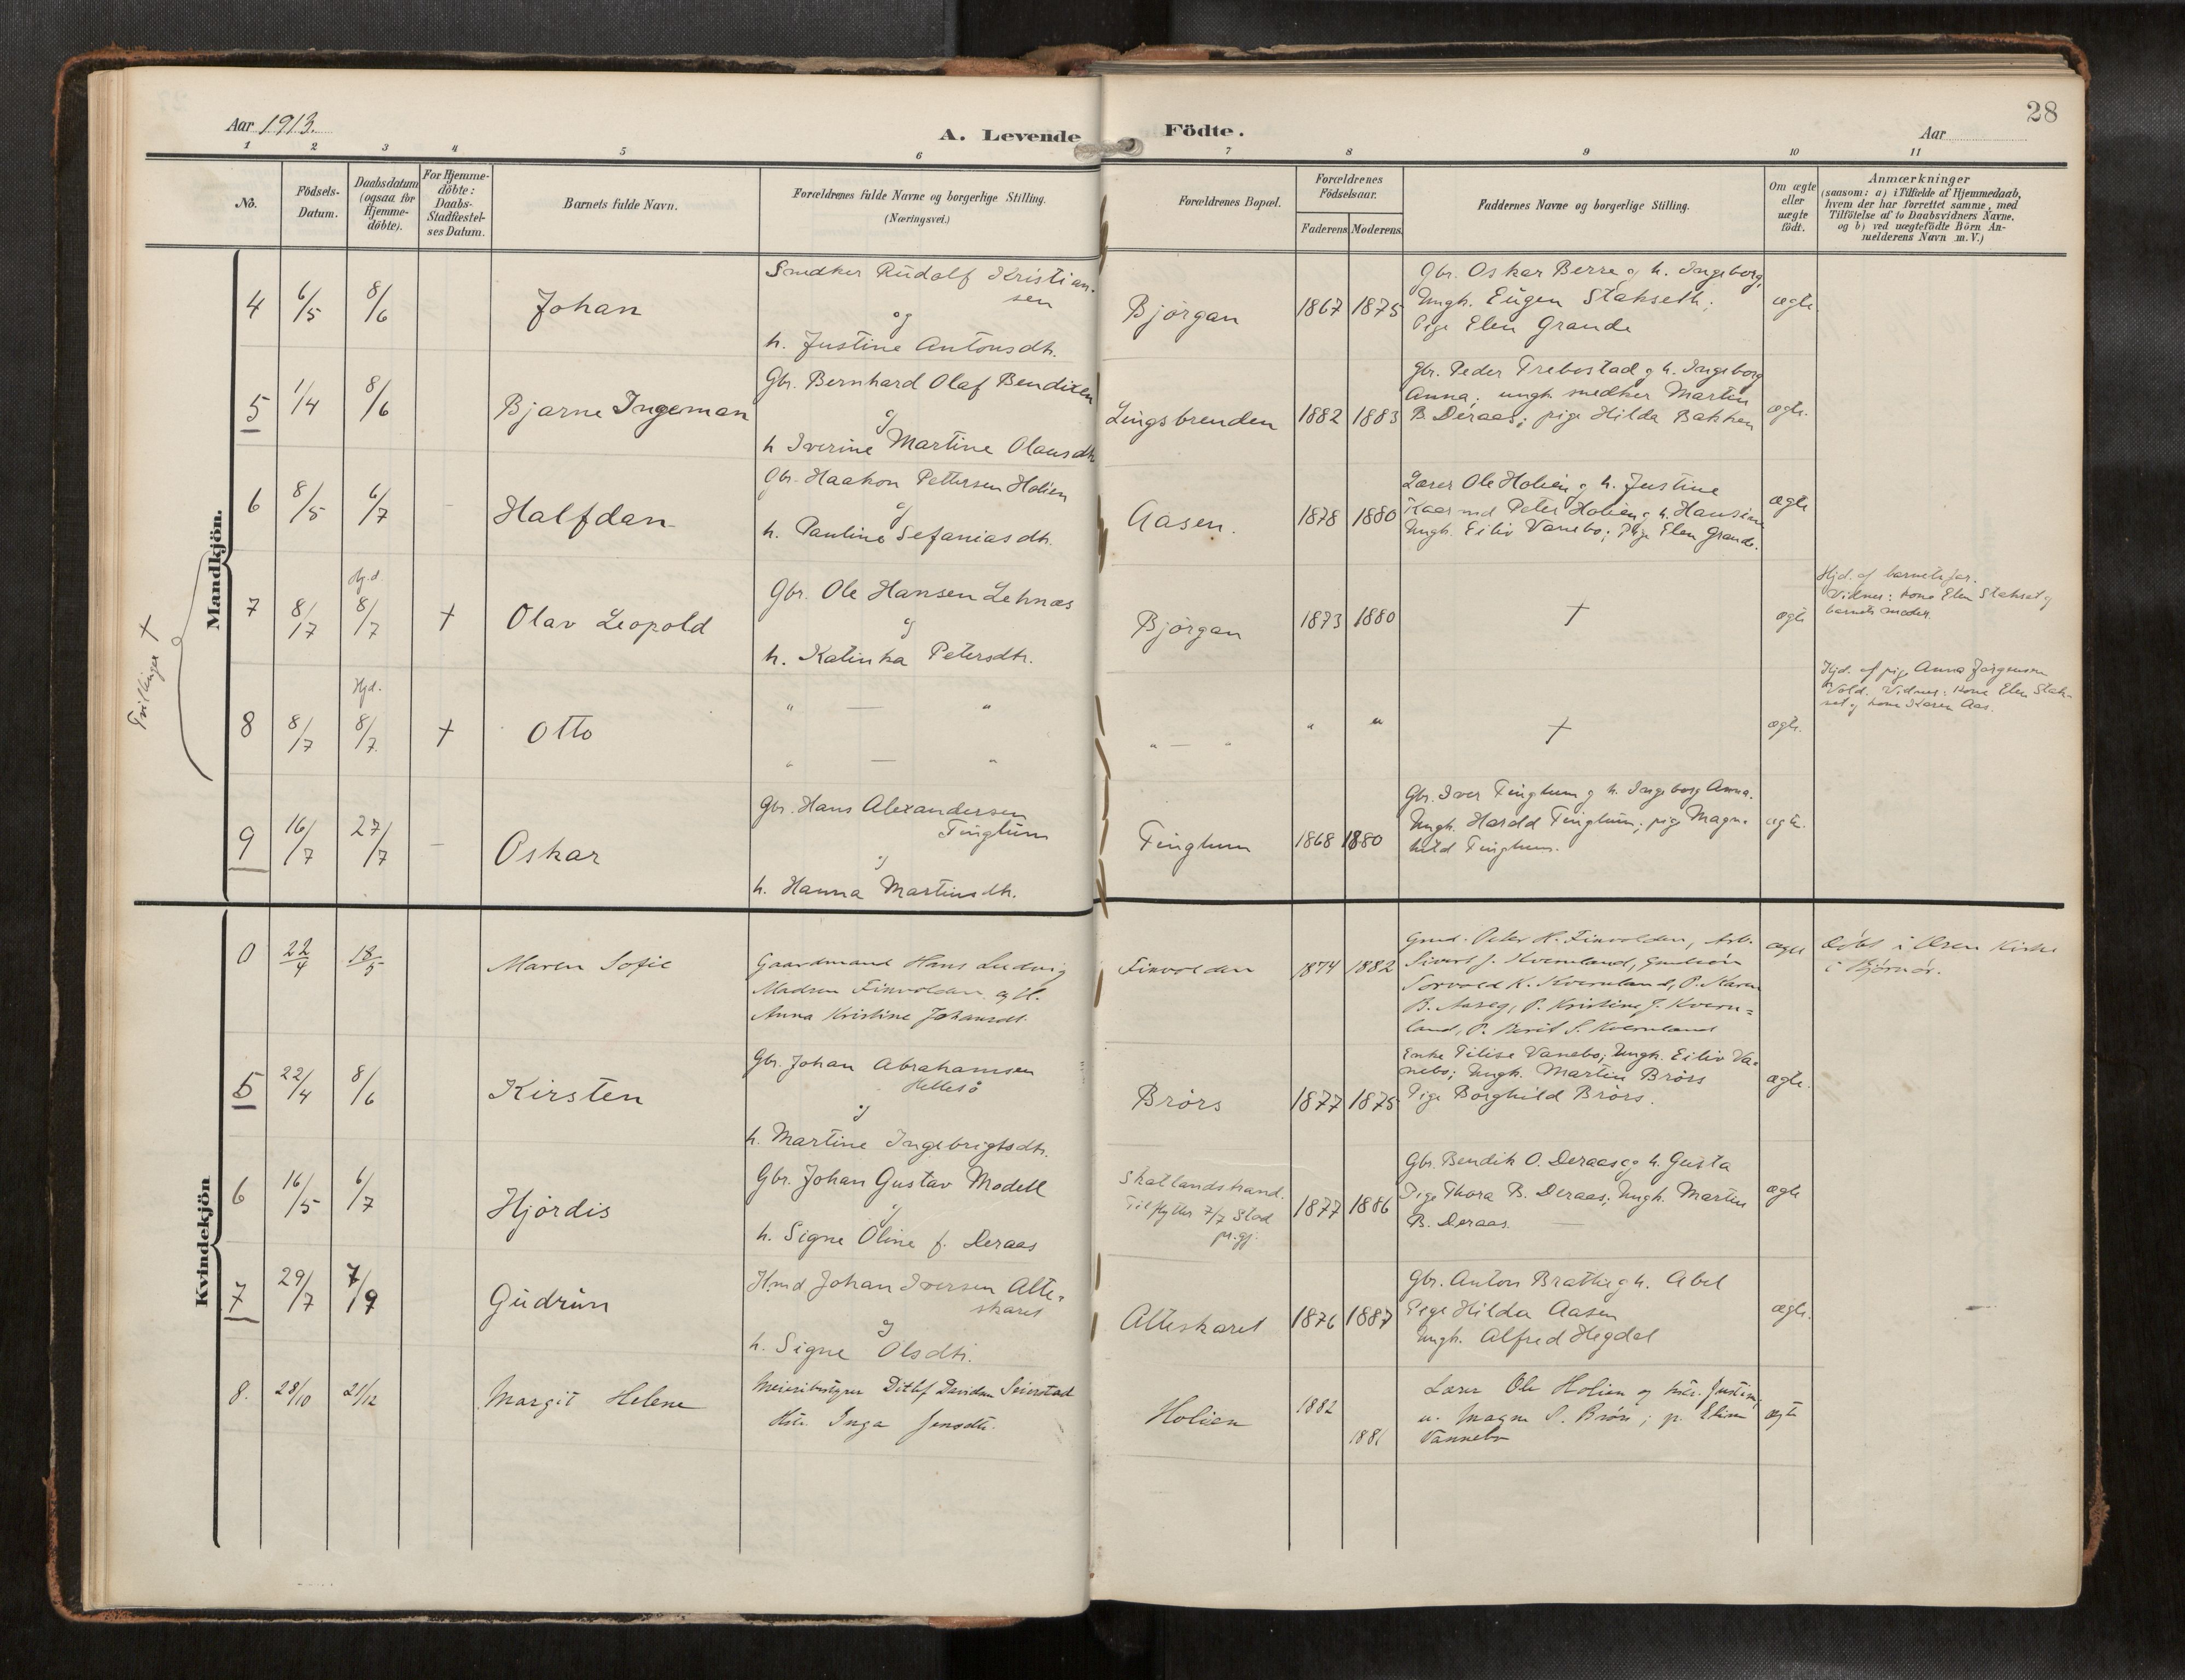 28
Aar 1913.
A. Levende Födte.
Aar
1 2 3 4 5 6 7 8 9 10 11
No.
Födsels-
Datum.
Daabsdatum
(ogsaa for
Hjemme-
döbte).
For Hjemme-
döbte:
Daabs-
Stadfæstel-
ses Datum.
Barnets fulde Navn.
Forældrenes fulde Navne og borgerlige Stilling.
(Næringsvei.)
Forældrenes Bopæl.
Forældrenes
Födselsaar.
Faderens Moderens
Faddernes Navne og borgerlige Stilling.
Om ægte
eller
uægte
födt.
Anmærkninger
(saasom: a) i Tilfælde af Hjemmedaab,
hvem der har forrettet samme, med
Tilföielse af to Daabsvidners Navne.
og b) ved uægtefödte Börn An-
melderens Navn m. V.)
Mandkjön.
4 6/5 8/6 Johan
Snedker Rudolf Kristian-
sen
og
h. Justine Antonsdtr.
Bjørgan 1867 1875
Gbr. Oskar Berre og h. Ingeborg,
Ungk. Eugen Stahseth;
Pige Elen Grande
ægte
5 1/4 8/6 Bjarne Ingeman
Gbr. Bernhard Olaf Bendixen
og
h Iverine Martine Olausdtr
Lingsbrenden 1882 1883
Gbr. Peder Trebostad og h. Ingeborg
Anna; ungk. snedker Martin
B. Deraas; pige Hilda Bakken
ægte.
6 8/5 6/7 - Halfdan
Gbr. Haakon Pettersen Holien
og
h. Pauline Sefaniasdtr.
Aasen. 1878 1880
Lærer Ole Holien og h. Justine
Kaarmd Peter Holien og h. Hansine
Ungk. Eiliv Vanebo; Pige Elen Grande.
ægte
Tvillinger +
7 8/7 Hj.d. 8/7 + Olav Leopold
Gbr. Ole Hansen Lehnæs
og
h. Katinka Petersdtr.
Bjørgan 1873 1880 + ægte
Hjd. af barnets far.
Vidner: kone Elen Stahset og
barnets moder.
8 8/7 Hjd. 8/7. + Otto
" — "
" — "
" — " " " + ægte.
Hjd. af pige Anna Jørgensen
Vold. Vidner: kone Elen Stah-
set og kone Karen Aas.
9 16/7 27/7 - Oskar
Gbr. Hans Alexandersen
Finglum
og
h. Hanna Martinsdtr.
Finglum 1868 1880
Gbr. Iver Finglum og h. Ingeborg Anna.
Ungk. Harald Finglum; pige Magn-
hild Finglum.
ægte.
Kvindekjön
0 22/4 18/5 Maren Sofie
Gaardmand Hans Ludvig
Madsen Finvolden og H.
Anna Kristine Johansdt.
Finvolden 1874 1882
Gmd. Peter H. Finvolden, Arb.
Sivert J. Kvernland,
Torvald K. Kvernland, P. Karen
B. Aaseg, P. Kristine J. Kvern=
land, P. Berit S. Kvernland
ægte
Døbt i Osen Kirke
i Bjørnør.
5 22/4 8/6 Kirsten
Gbr. Johan Abrahamsen
Hellesø
og
h. Martine Ingebrigtsdtr.
Brørs 1877 1875
Enke Tilise Vanebo; Ungk. Eiliv Va-
nebo; Ungk. Martin Brørs
Pige Borghild Brørs.
ægte.
6 16/5 6/7 Hjørdis
Gbr. Johan Gustav Modell
og
h. Signe Oline f. Deraas
Skatlandstrand.
Tilflytter 7/7 Stod
pr.gj.
1877 1886
Gbr. Bendik O. Deraas og h. Gusta
Pige Thora B. Deraas; Ungk. Martin
B. Deraas.
ægte
7 29/7 7/9 Gudrun
Hmd Johan Iversen Alte-
skaret
og
h. Signe Olsdtr.
Alteskaret 1876 1887
Gbr. Anton Brathe og h. Abel
Pige Hilda Aasen
Ungk. Alfred Hegdal
ægte.
8. 28/10 21/12 Margit Helene
Meieribestyrer Ditlef Davidsen Seierstad
Hstr. Inga Jensdtr.
Holien 1882
1881
Lærer Ole Holien og hstr. Justine,
u. Magne P. Brørs; p. Eline
Vannebo
ægte